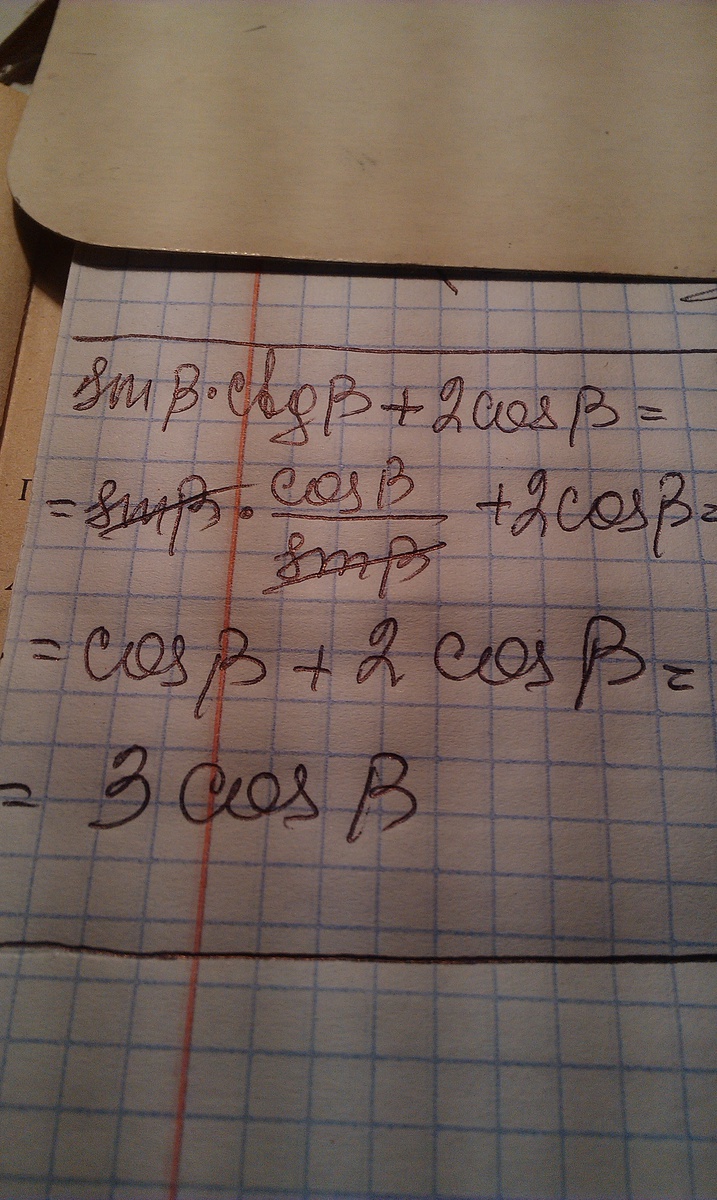 sinβ·ctgβ+2cosβ=
=sinβ·cosβ/sinβ+2cosβ=
=cosβ+2cosβ=
=3cosβ